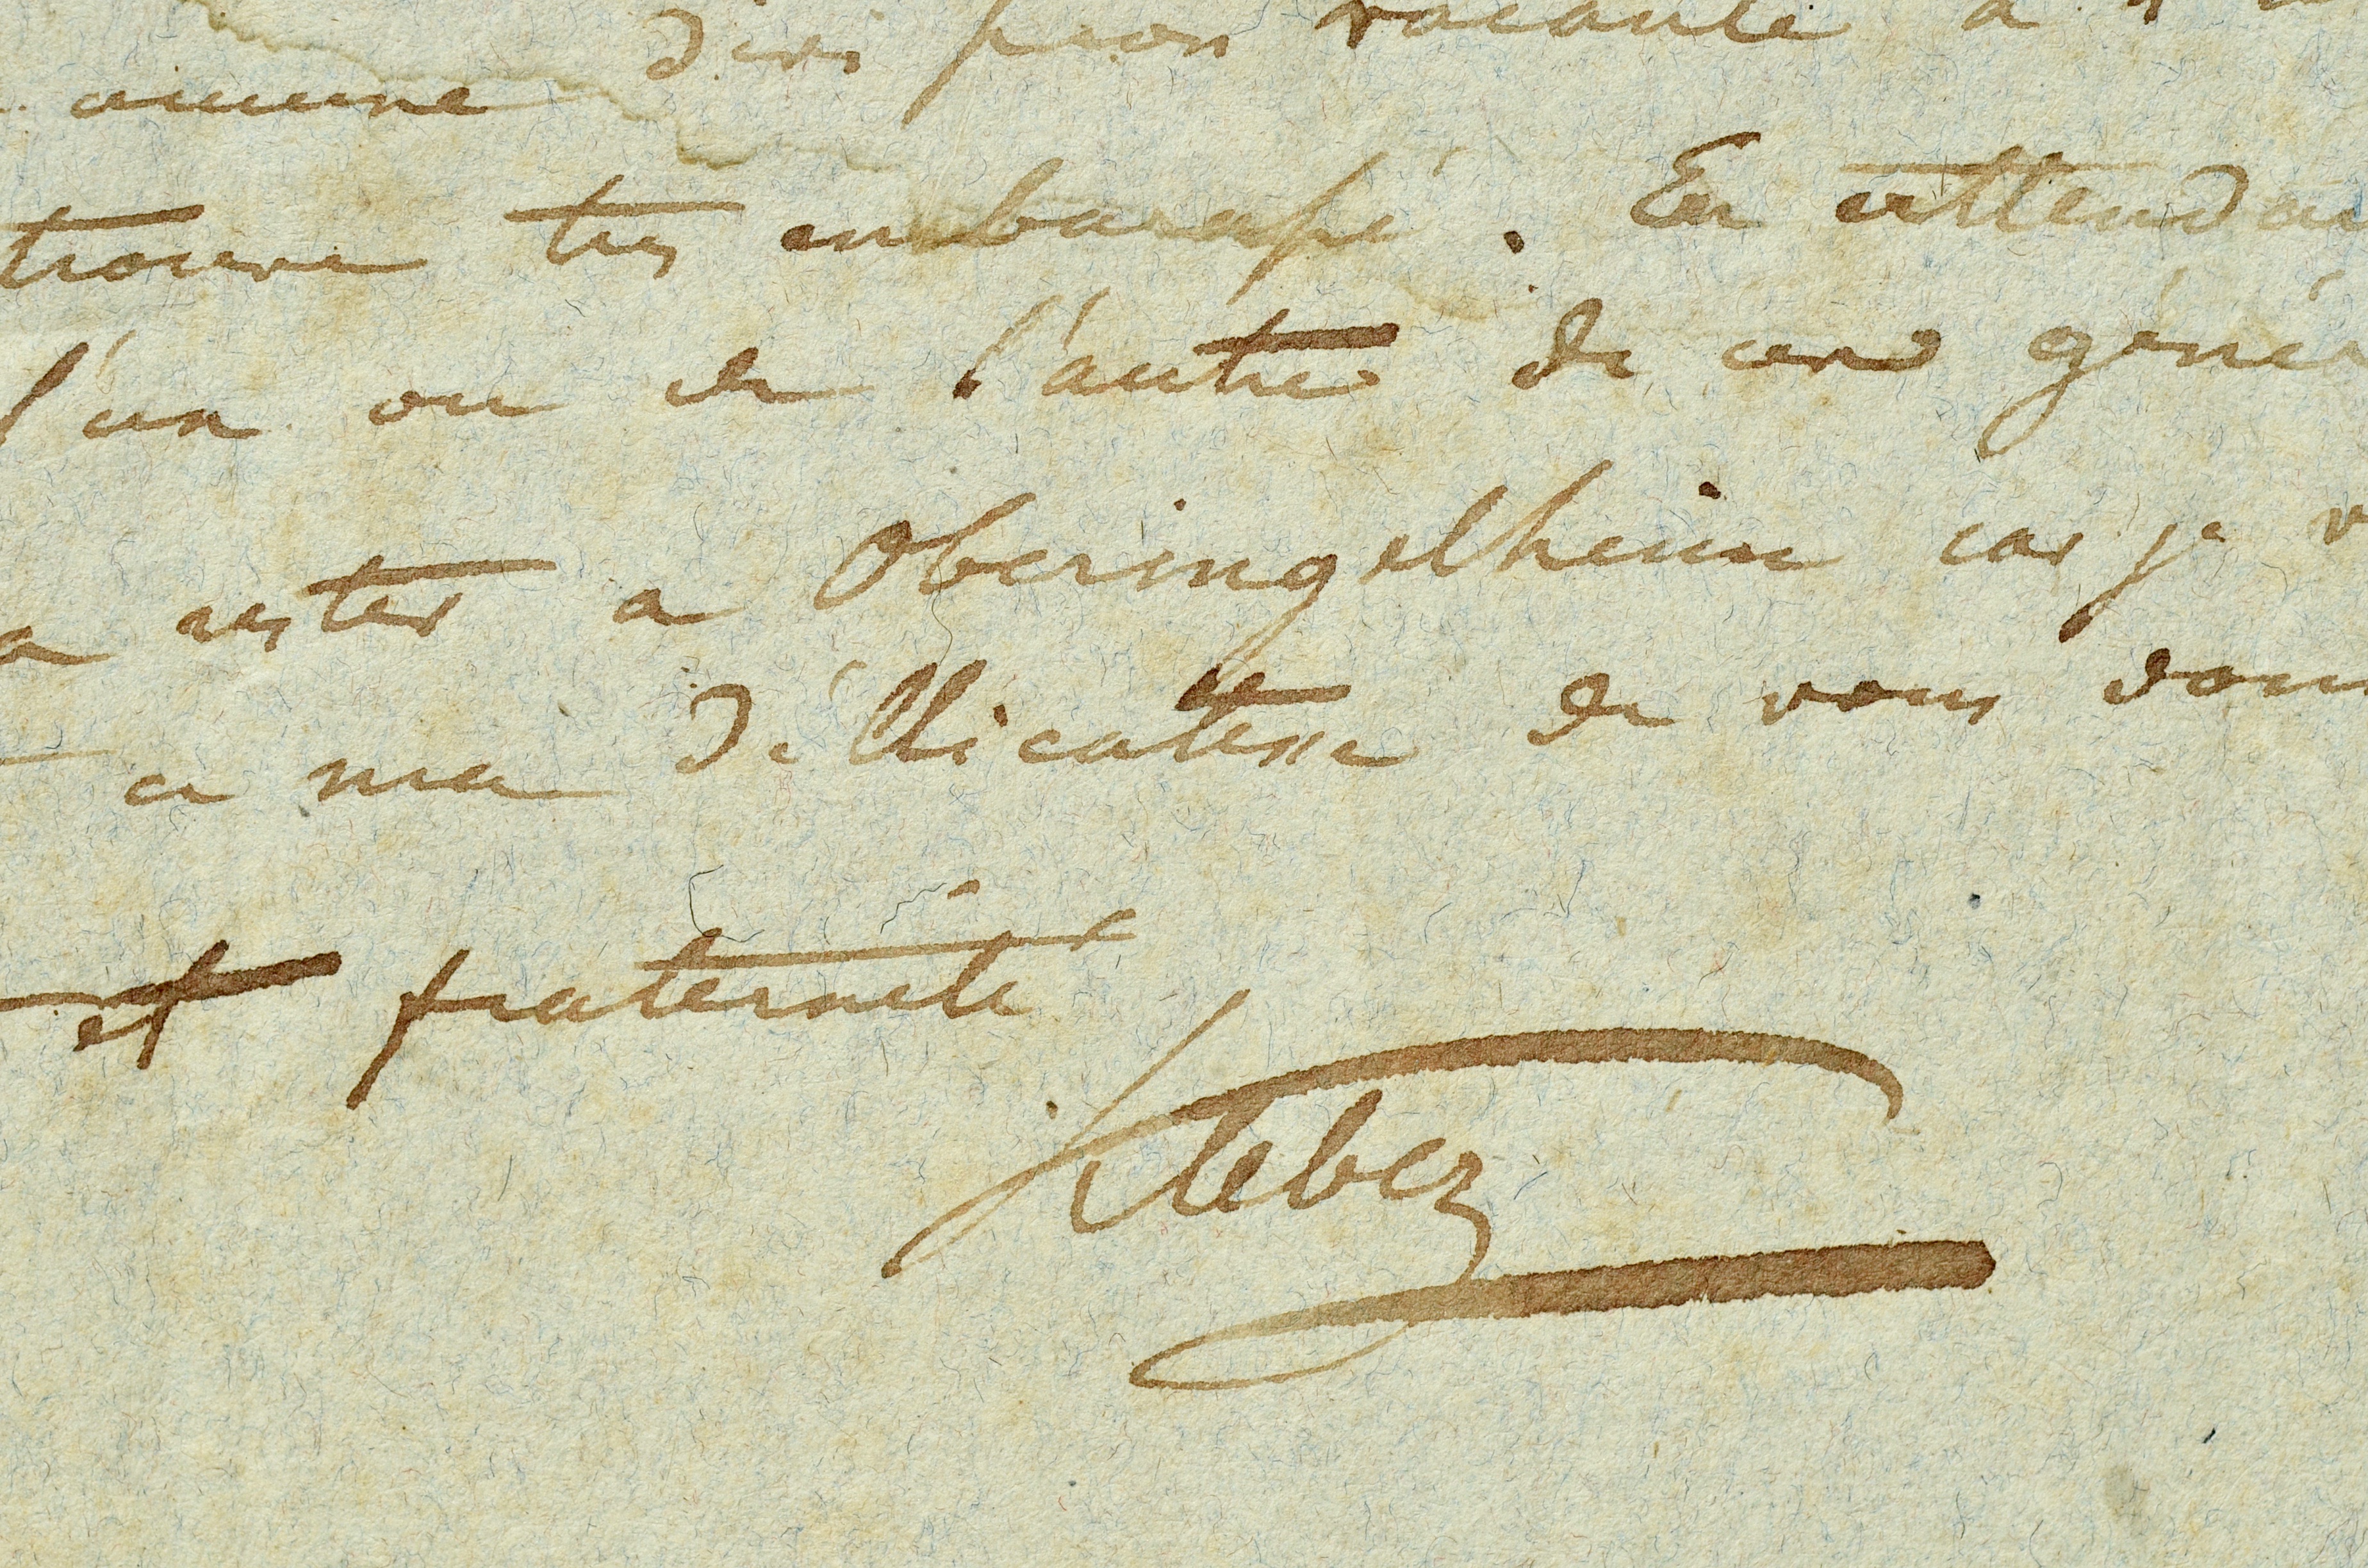 division vacante à
aucune
trouve tres embarassé. En attendan
l'un ou de l'autre de ces génér
a rester a Oberingelheim car je v
a ma déllicatesse de vous donn
et fraternité
Kleber